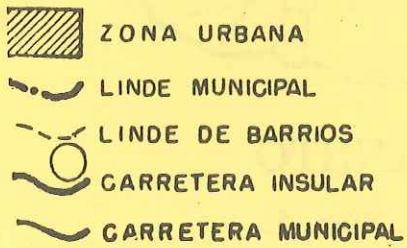 ZONA URBANA
LINDE MUNICIPAL
LINDE DE BARRIOS
CARRETERA INSULAR
CARRETERA MUNICIPAL